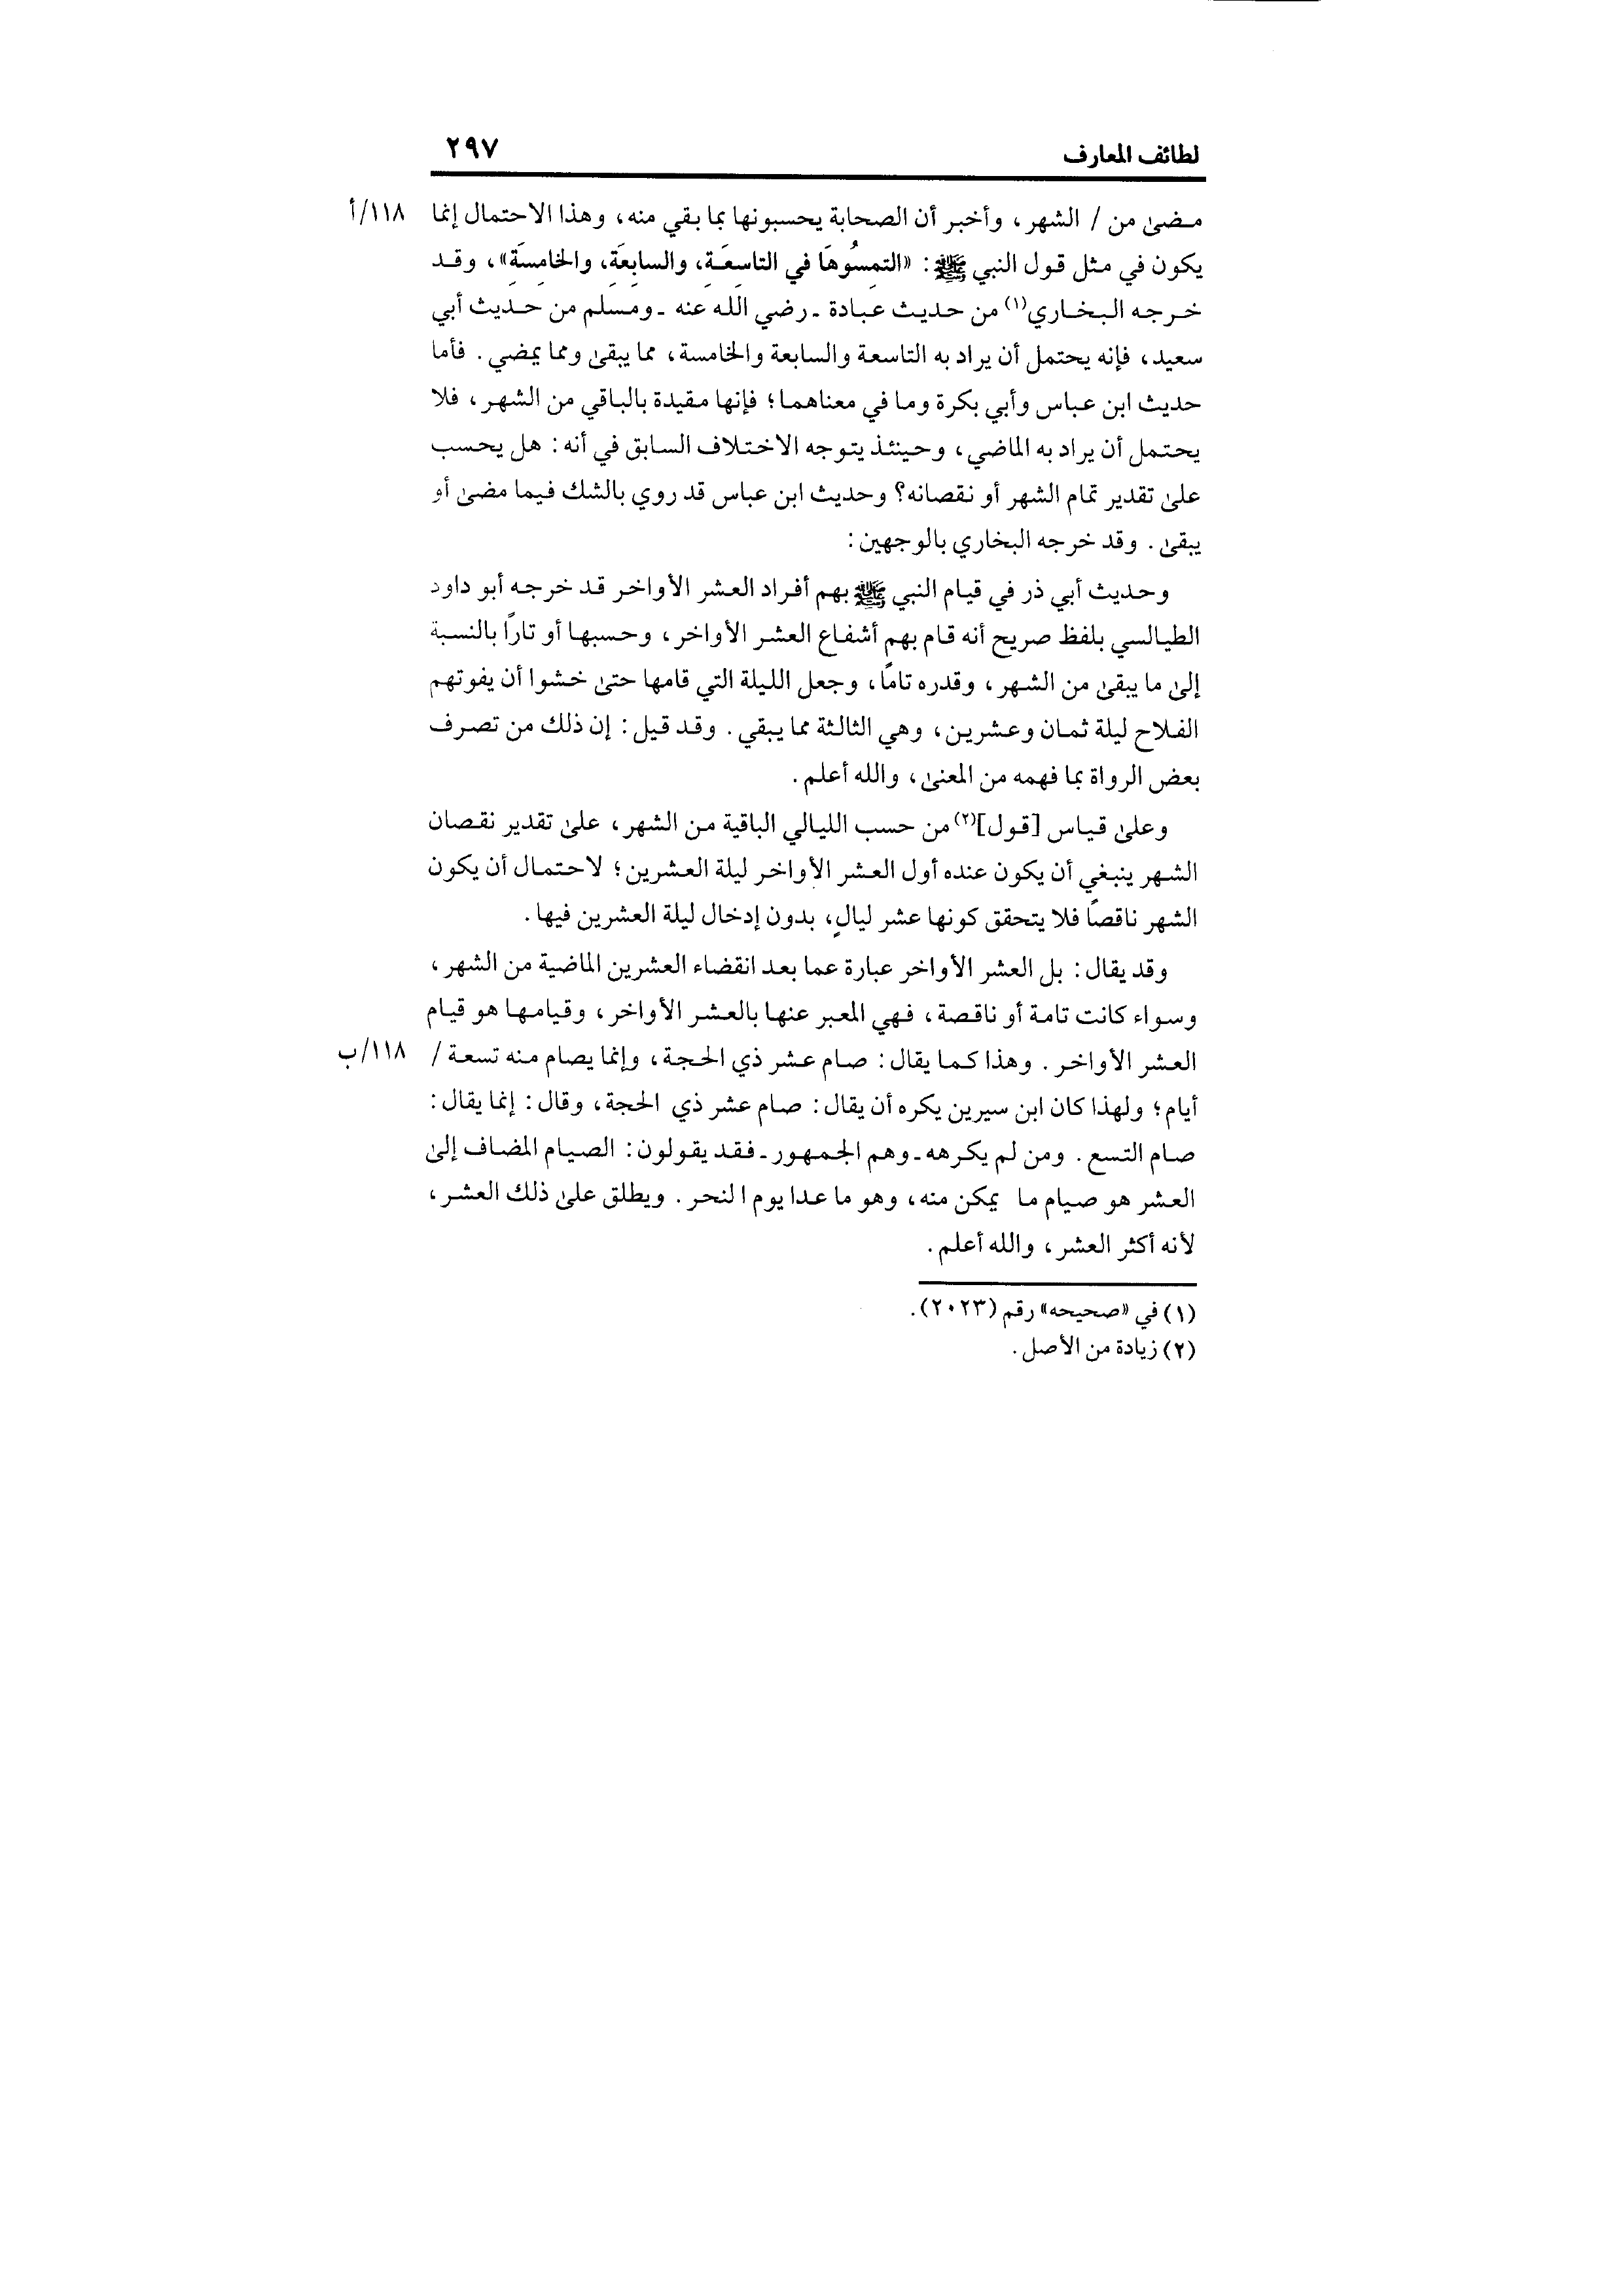 لطائف المعارف ٢٩٧
مضىٰ من / الشهر، وأخبر أن الصحابة يحسبونها بما بقي منه، وهذا الاحتمال إنما ١١٨/أ
يكون في مثل قول النبي ﷺ: «التمِسُوهَا في التاسِعَةِ، والسابِعَةِ، والخامِسَةِ»، وقد
خرجه البخاري(١) من حديث عبادة ـ رضي الله عنه ـ ومسلم من حديث أبي
سعيد، فإنه يحتمل أن يراد به التاسعة والسابعة والخامسة، مما يبقىٰ ومما يمضي. فأما
حديث ابن عباس وأبي بكرة وما في معناهما؛ فإنها مقيدة بالباقي من الشهر، فلا
يحتمل أن يراد به الماضي، وحينئذ يتوجه الاختلاف السابق في أنه: هل يحسب
علىٰ تقدير تمام الشهر أو نقصانه؟ وحديث ابن عباس قد روي بالشك فيما مضىٰ أو
يبقىٰ. وقد خرجه البخاري بالوجهين:
وحديث أبي ذر في قيام النبي ﷺ بهم أفراد العشر الأواخر قد خرجه أبو داود
الطيالسي بلفظ صريح أنه قام بهم أشفاع العشر الأواخر، وحسبها أو تارًا بالنسبة
إلىٰ ما يبقىٰ من الشهر، وقدره تامًا، وجعل الليلة التي قامها حتىٰ خشوا أن يفوتهم
الفلاح ليلة ثمان وعشرين، وهي الثالثة مما يبقي. وقد قيل: إن ذلك من تصرف
بعض الرواة بما فهمه من المعنىٰ، والله أعلم.
وعلىٰ قياس [قول](٢) من حسب الليالي الباقية من الشهر، علىٰ تقدير نقصان
الشهر ينبغي أن يكون عنده أول العشر الأواخر ليلة العشرين؛ لاحتمال أن يكون
الشهر ناقصًا فلا يتحقق كونها عشر ليالٍ، بدون إدخال ليلة العشرين فيها.
وقد يقال: بل العشر الأواخر عبارة عما بعد انقضاء العشرين الماضية من الشهر،
وسواء كانت تامة أو ناقصة، فهي المعبر عنها بالعشر الأواخر، وقيامها هو قيام
العشر الأواخر. وهذا كما يقال: صام عشر ذي الحجة، وإنما يصام منه تسعة / ١١٨/ب
أيام؛ ولهذا كان ابن سيرين يكره أن يقال: صام عشر ذي الحجة، وقال: إنما يقال:
صام التسع. ومن لم يكرهه ـ وهم الجمهور ـ فقد يقولون: الصيام المضاف إلىٰ
العشر هو صيام ما يمكن منه، وهو ما عدا يوم النحر. ويطلق علىٰ ذلك العشر،
لأنه أكثر العشر، والله أعلم.
(١) في «صحيحه» رقم (٢٠٢٣).
(٢) زيادة من الأصل.